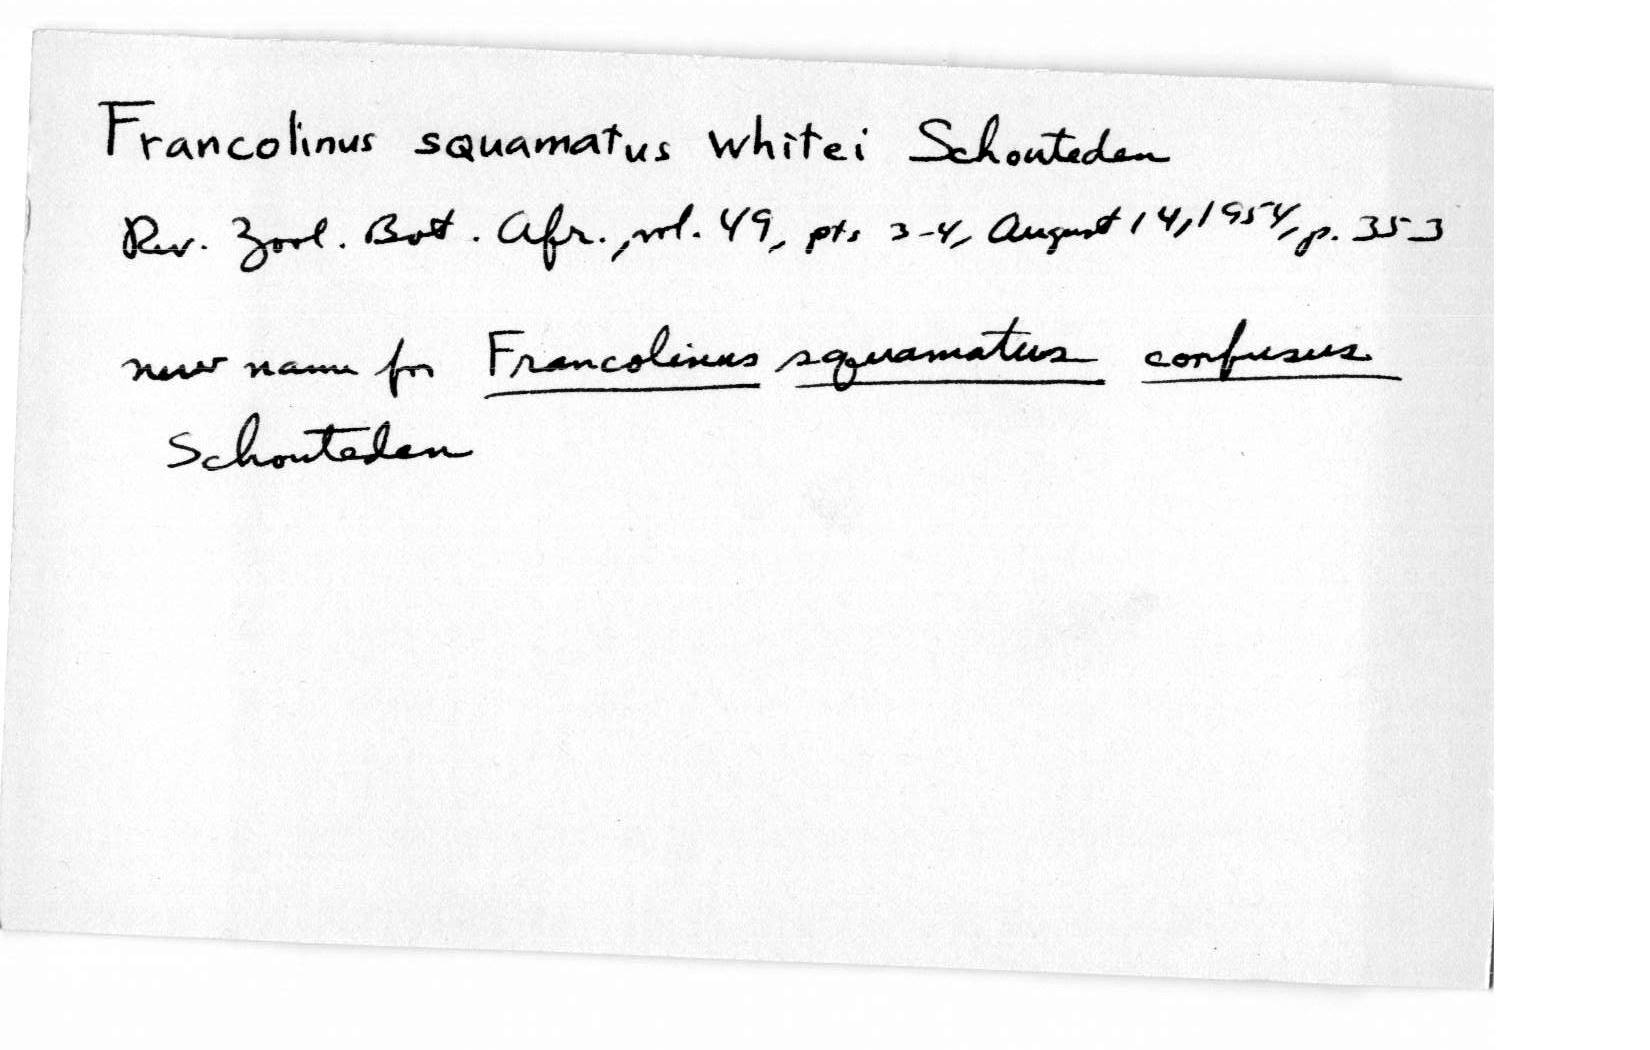 Francolinus squamatus whitei Schouteden
Rev. Zool. Bot. Afr., vol. 49, pts 3-4, August 14, 1954, p. 353
new name for Francolinus squamatus confusus
Schouteden